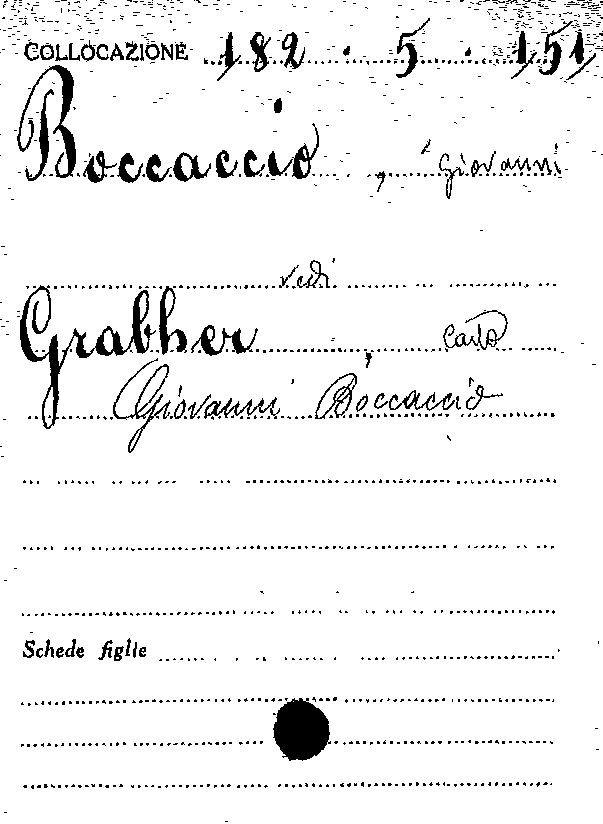 COLLOCAZIONE 182 . 5 . 151
Boccaccio, Giovanni
vedi
Grabher, Carlo
Giovanni Boccaccio
Schede figlie